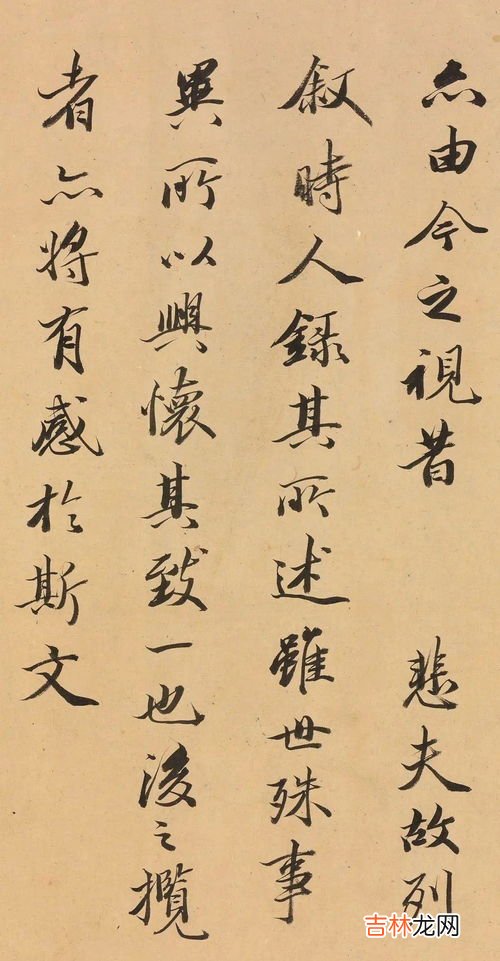 亦由今之視昔 悲夫故列
叙時人錄其所述雖世殊事
異所以興懷其致一也後之攬
者亦將有感於斯文
吉林龙网